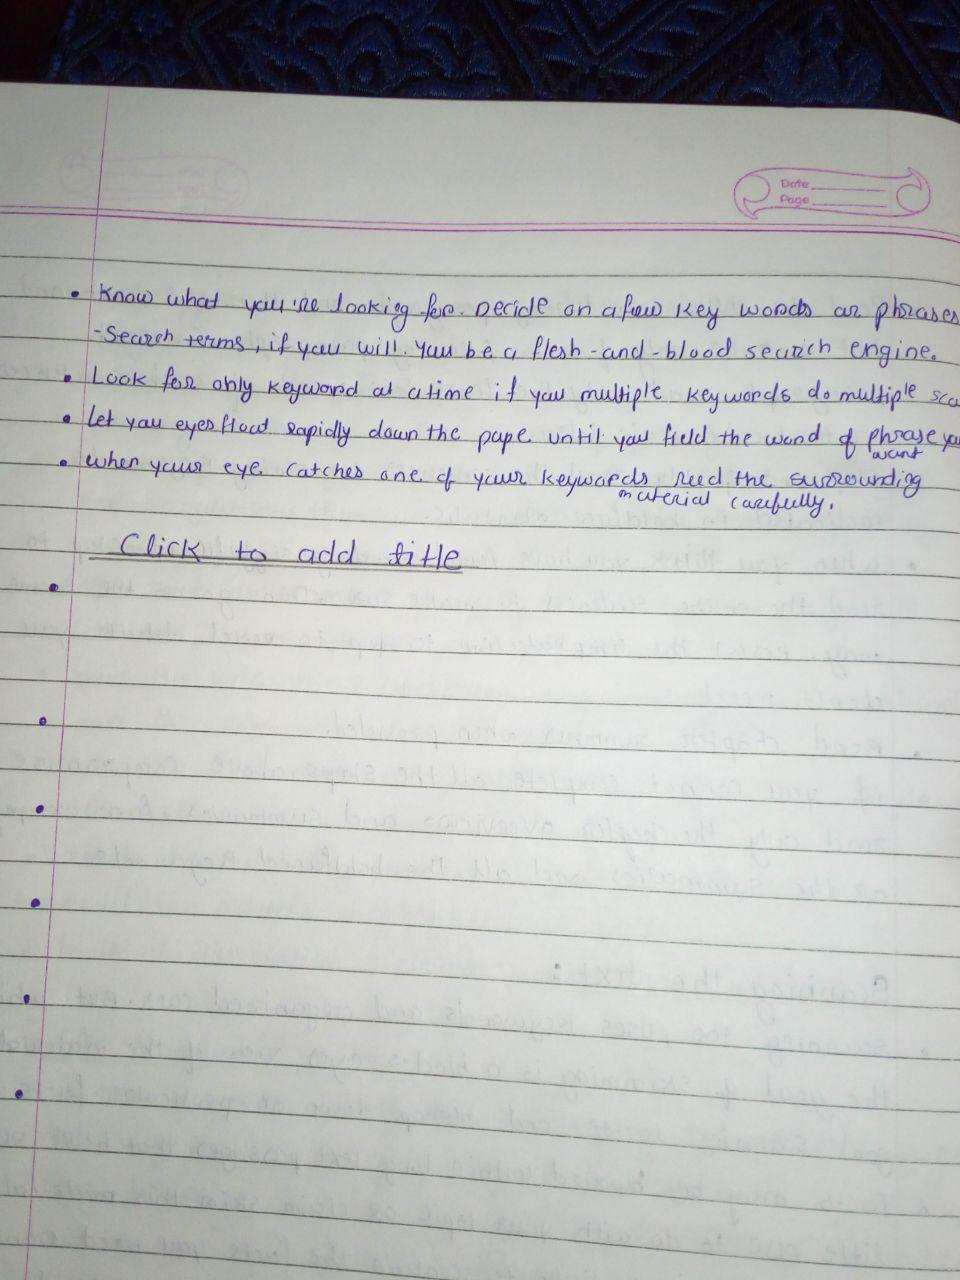 Date
Page
• Know what you're looking for. Decide on a few key words or phrases
-Search terms, if you will. you be a flesh-and-blood search engine.
• Look for only keyword at a time if you multiple keywords do multiple sca
• let you eyes flow rapidly down the pape until you field the word of phrase you
want
• when your eye catches one of your keywords, reed the surrounding
material carefully.
Click to add title